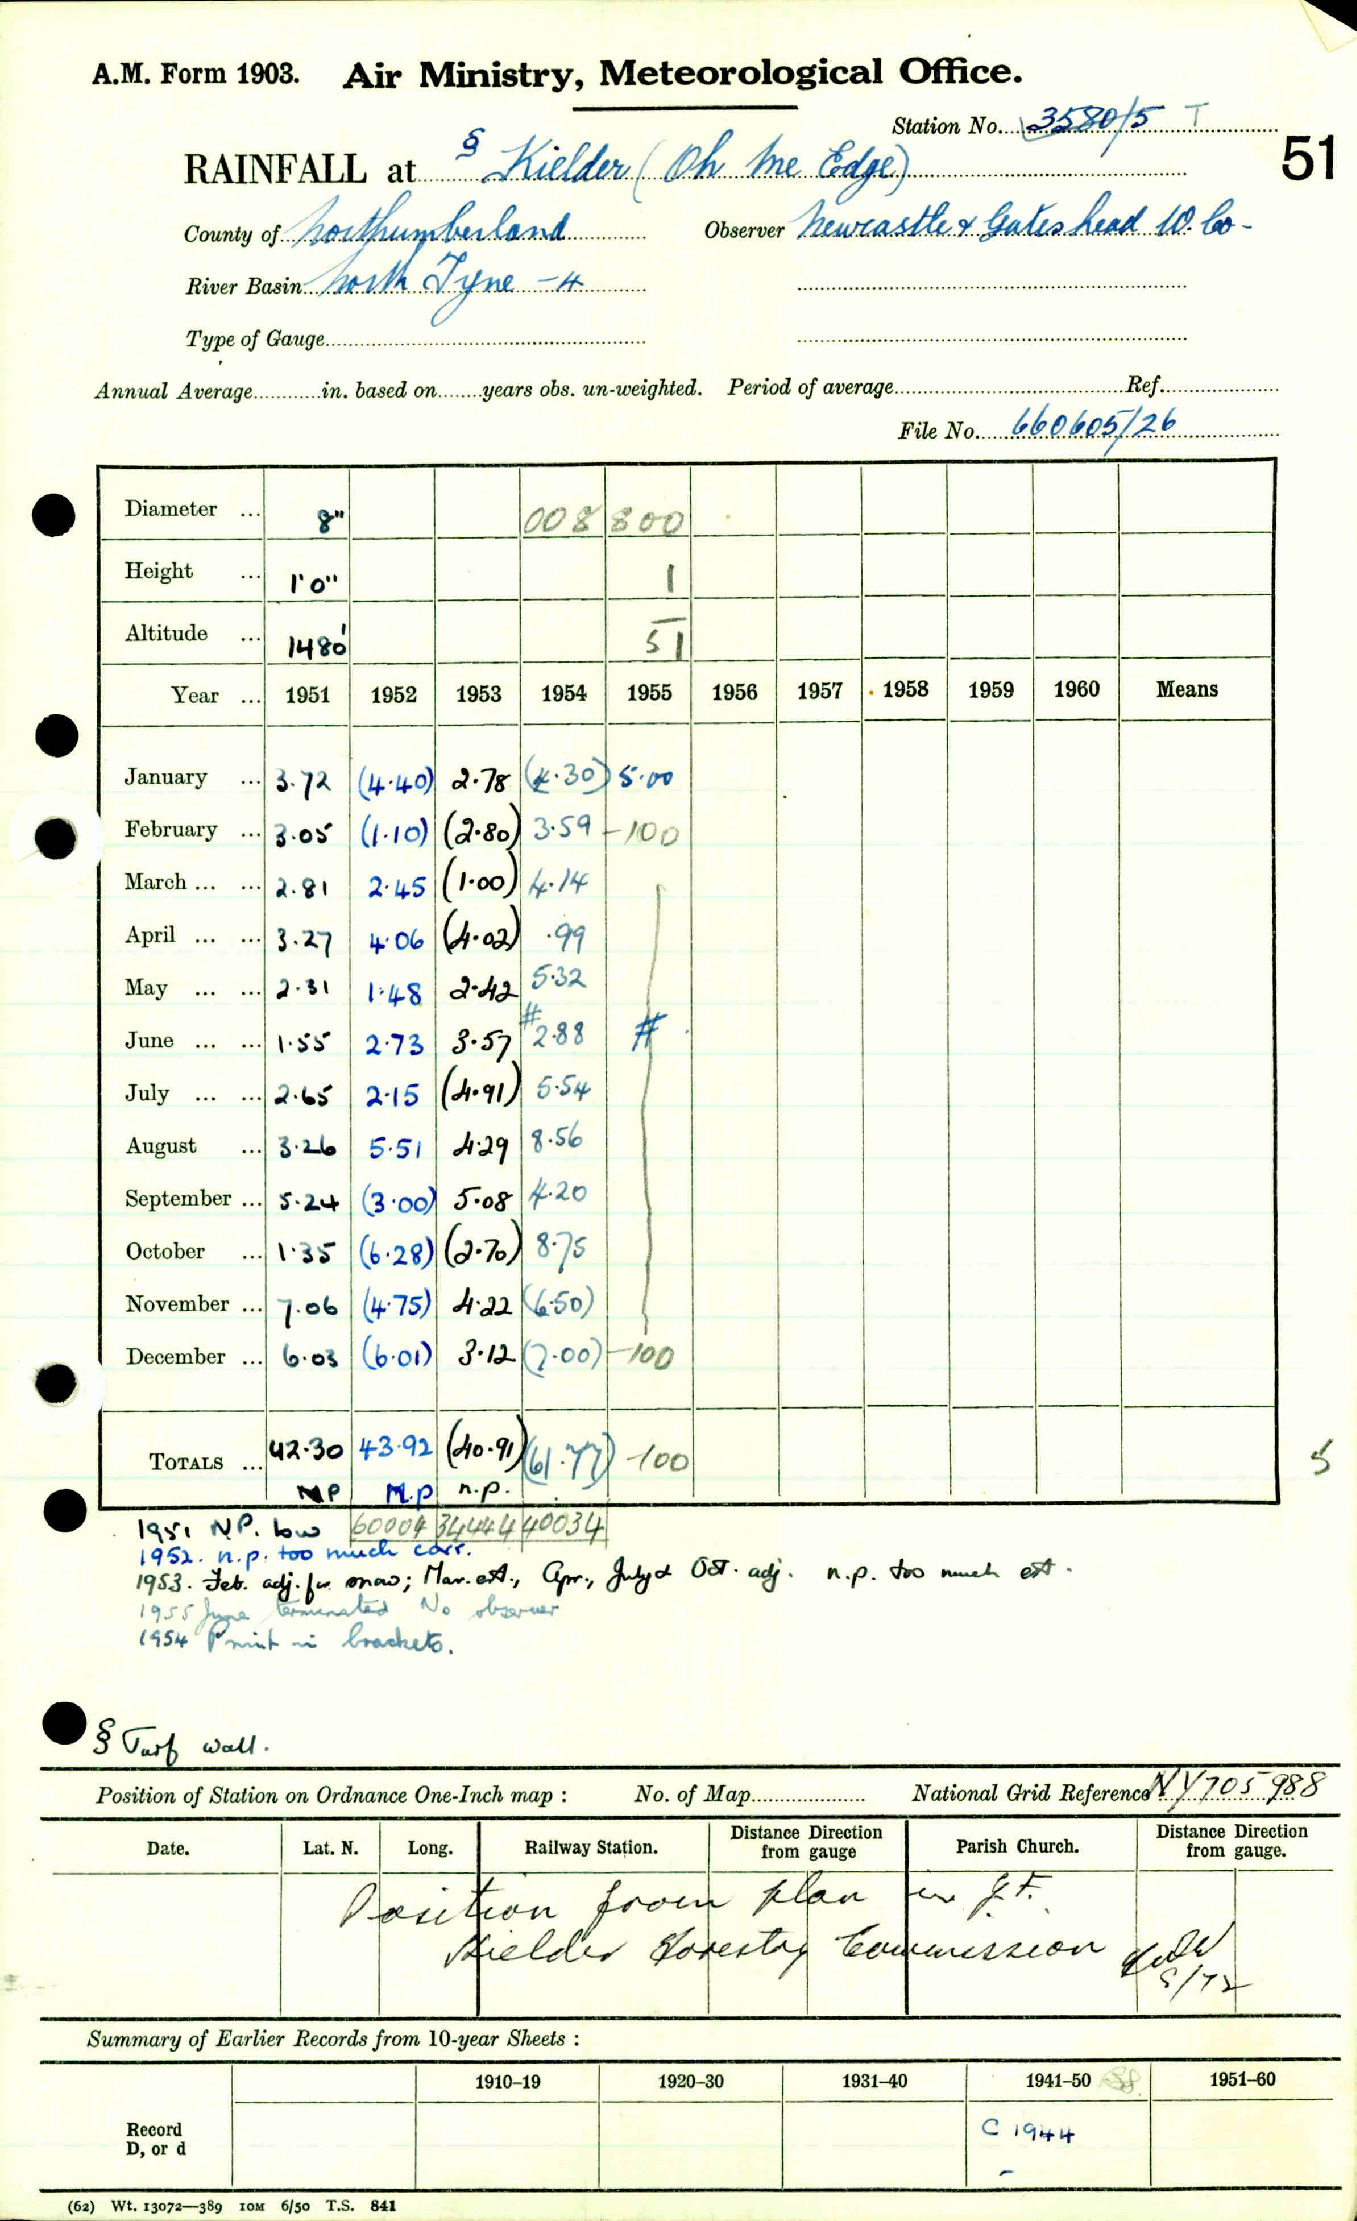 A.M. Form 1903. Air Ministry, Meteorological Office.
Station No. 3580/5 T
51
RAINFALL at § Kielder (Oh Me Edge)
County of Northumberland Observer Newcastle & Gateshead W. Co.
River Basin North Tyne - 4
Type of Gauge
Annual Average in. based on years obs. un-weighted. Period of average Ref.
File No. 660605/26
Diameter ... 8" 008 800
Height ... 1'0" 1
Altitude ... 1480' 51
Year ... 1951 1952 1953 1954 1955 1956 1957 1958 1959 1960 Means
January ... 3.72 (4.40) 2.78 (4.30) 5.00
February ... 3.05 (1.10) (2.80) 3.59 -100
March ... ... 2.81 2.45 (1.00) 4.14
April ... ... 3.27 4.06 (4.02) .99
May ... ... 2.31 1.48 2.42 5.32
June ... ... 1.55 2.73 3.57 #2.88 #
July ... ... 2.65 2.15 (4.91) 5.54
August ... 3.26 5.51 4.29 8.56
September ... 5.24 (3.00) 5.08 4.20
October ... 1.35 (6.28) (2.70) 8.75
November ... 7.06 (4.75) 4.22 (6.50)
December ... 6.03 (6.01) 3.12 (7.00) -100
TOTALS ... 42.30 43.92 (40.91) (61.77) -100 5
NP N.P n.p.
1951 N.P. low 60004 34444 40034
1952. n.p. too much corr.
1953. Feb. adj. for snow; Mar. est., Apr., July & Oct. adj. n.p. too much est.
1955 June terminated No observer
1954 Print in brackets.
§ Turf wall.
Position of Station on Ordnance One-Inch map : No. of Map National Grid Reference NY 705988
Date. Lat. N. Long. Railway Station. Distance Direction from gauge Parish Church. Distance Direction from gauge.
Position from plan in
Kielder Forestry Commission
8/72
Summary of Earlier Records from 10-year Sheets :
1910–19 1920–30 1931–40 1941–50 1951–60
Record
D, or d
C 1944
-
(62) Wt. 13072—389 10M 6/50 T.S. 841